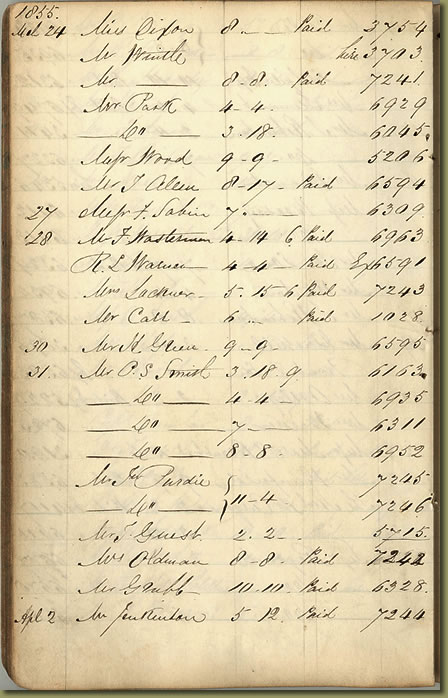 1855.
Mch 24 Miss Dixon 8 . — Paid 3754
Mr Whittle hire 3703.
Mr — 8 - 8. Paid 7241
Mr Park 4 - 4 - 6929
— Do — 3 . 18. 6045
Wood 9 - 9 - 5206
Mr J 8 - 17 - Paid 6594
27 F. Sabin 7. — 6309
28 Mr F. 4 - 14 6 Paid 6963
R. L Warner 4 - 4 - Paid Ex 6591
Mrs Lockner - 5. 15 6 Paid 7243
Mr Catt - 6 .. Paid 1028
30 Mr H. Green - 9 - 9 - 6595
31 Mr P. S Smith 3 . 18 . 9 6163
— Do — 4 - 4 6935
— Do — 7 — 6311
— Do — 8 - 8 - 6952
Mr Jno Purdie 7245
— Do — } 11 - 4 7246
Mr T. Guest 2 . 2 - . 5715.
Mrs Oldman 8 - 8 - Paid 7242
Mr Grubb 10 - 10. Paid 6328
Apl 2 Mr Jenkinson 5 12. Paid 7244